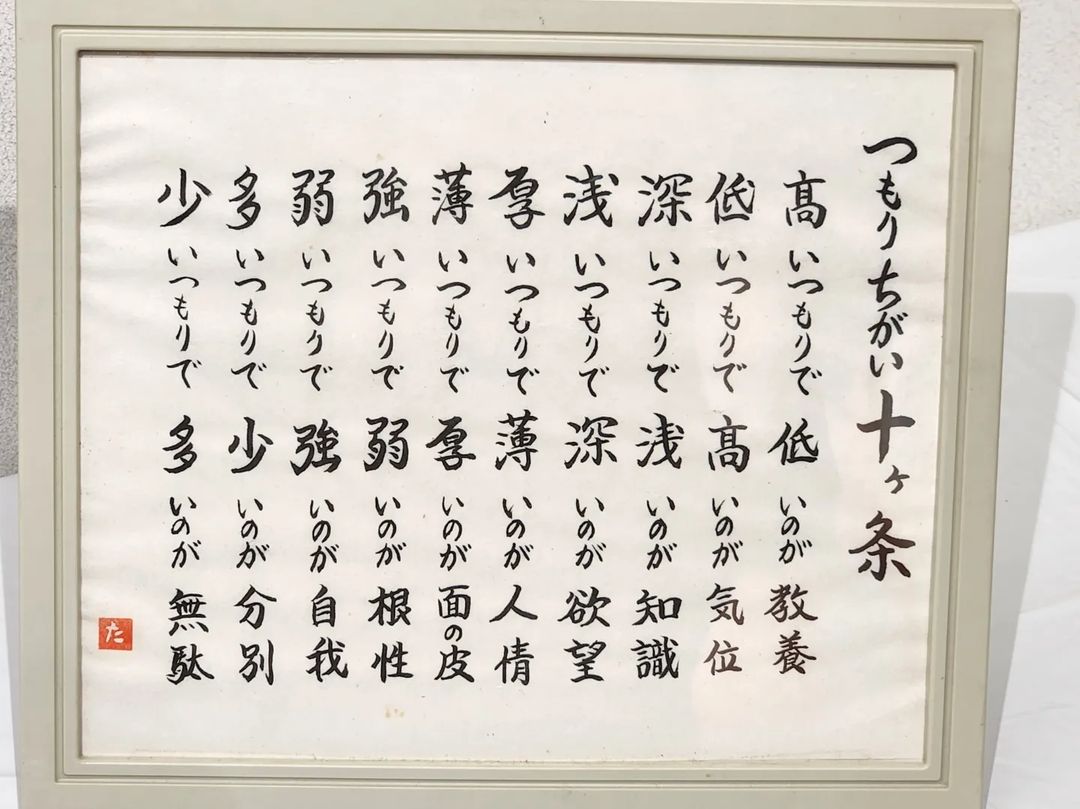 つもりちがい十ヶ条
髙いつもりで低いのが教養
低いつもりで髙いのが気位
深いつもりで浅いのが知識
浅いつもりで深いのが欲望
厚いつもりで薄いのが人情
薄いつもりで厚いのが面の皮
強いつもりで弱いのが根性
弱いつもりで強いのが自我
多いつもりで少いのが分別
少いつもりで多いのが無駄
た